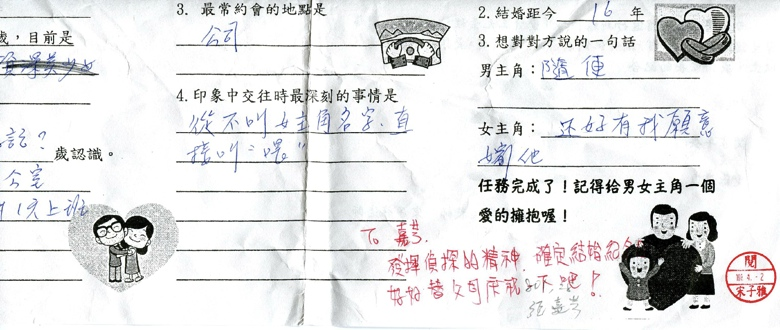 歲，目前是
歲認識。
公室
1天上班
3. 最常約會的地點是
公司
4.印象中交往時最深刻的事情是
從不叫女主角名字，直
接叫“喂”
2.結婚距今 16 年
3.想對對方說的一句話
男主角：隨便
女主角：還好有我願意
嫁他
任務完成了！記得給男女主角一個
愛的擁抱喔！
To 嘉芸.
發揮偵探的精神，確定結婚紀念
好好替父母慶祝一下吧！
閱
宋子雅